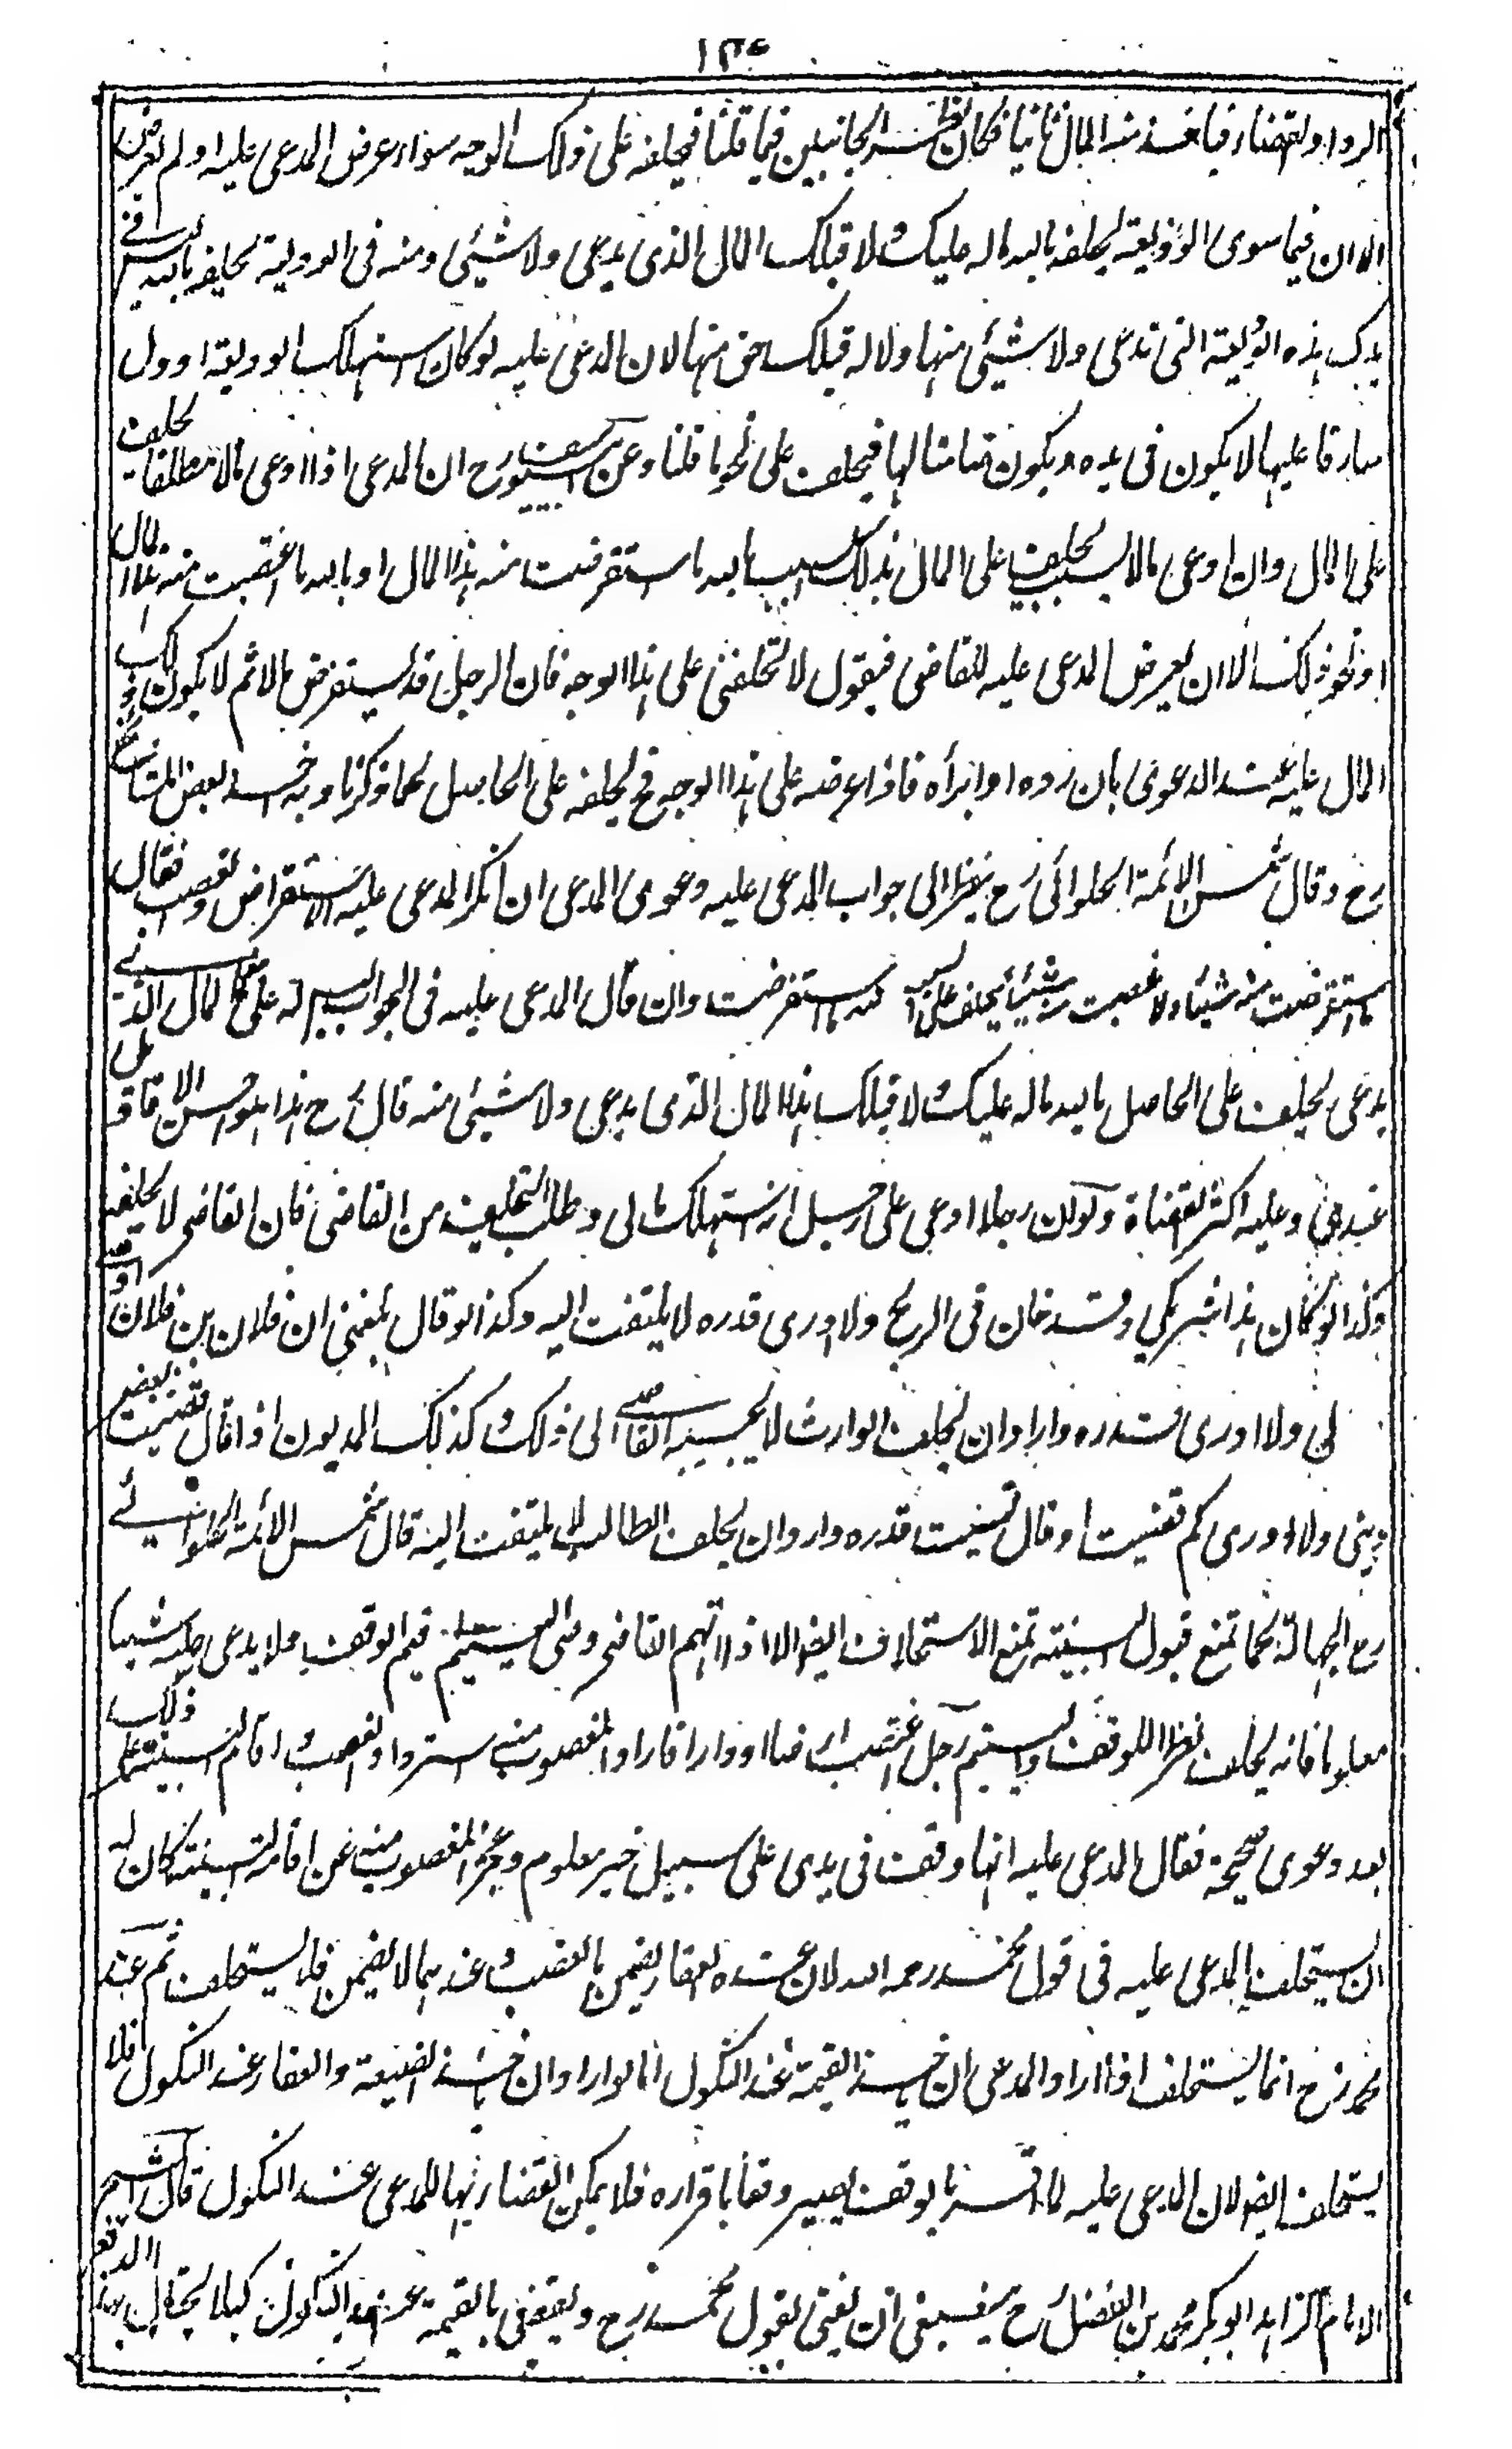 ١٣٤
الرد او القضاء فياخذ منه المال ثانيا فكان نظر الجانبين فيما قلنا فيحلفه على ذلك الوجه سواء عرض المدعى عليه او لم يعرض
الا ان فيما سوى الوديعة يحلفه بالله ماله عليك ولا قبلك المال الذى يدعى ولا شيئى منه وفى الوديعة يحلفه بالله ليس فى
يدك هذه الوديعة التى تدعى ولا شيئى منها ولا له قبلك حق منها لان المدعى عليه لو كان استهلك الوديعة او دل
سارقا عليها لا يكون فى يده ويكون ضامنا لها فيحلف على نحو ما قلنا وعن ابى يوسف رح ان المدعى اذا ادعى مالا مطلقا يحلف
على المال وان ادعى مالا بسبب يحلف على المال بذلك السبب بالله ما استقرضت منه هذا المال او بالله ما اغتصبت منه هذا المال
او نحو ذلك الا ان يعرض المدعى عليه للقاضى فيقول لا تحلفنى على هذا الوجه فان الرجل قد يستقرض مالا ثم لا يكون ذلك
المال عليه عند الدعوى بان رده او ابرأه فاذا عرضه على هذا الوجه ح يحلفه على الحاصل كما ذكرنا وبه اخذ بعض المشايخ
رح وقال شمس الائمة الحلوائى رح ينظر الى جواب المدعى عليه دعوى المدعى ان انكر المدعى عليه الاستقراض والغصب فقال
ما استقرضت منه شيئا ولا غصبت منه شيئا يحلف على السبب بالله ما استقرضت وان قال المدعى عليه فى الجواب ليس له على هذا المال الذى
يدعى يحلف على الحاصل بالله ماله عليك ولا قبلك هذا المال الذى يدعى ولا شيئى منه قال رح هذا هو احسن الاقاويل
عندى وعليه اكثر القضاة ولو ان رجلا ادعى على رجل انه استهلك مالى وطلب التحليف من القاضى فان القاضى لا يحلفه
وكذا لو كان هذا شريكى وقد خان فى الربح ولا ادرى قدره لا يلتفت اليه وكذا لو قال بلغنى ان فلان بن فلان اوصى
لى ولا ادرى قدره واراد ان يحلف الوارث لا يجيبه القاضى الى ذلك وكذلك المديون اذا قال قضيت بعض
دينى ولا ادرى كم قضيت او قال نسيت قدره واراد ان يحلف الطالب لا يلتفت اليه قال شمس الائمة الحلوائى
رح الجهالة كما تمنع قبول البينة تمنع الاستحلاف ايضا الا اذا اتهم القاضى وصى اليتيم او قيم الوقف ولا يدعى عليه شيئا
معلوما فانه يحلف نظرا للوقف واليتيم رجل اغتصب ارضا او دارا فاراد المغصوب منه استرداد الغصب واقام البينة على ذلك
بعد دعوى صحيحة فقال المدعى عليه انها وقفت فى يدى على سبيل خير معلوم وعجز المغصوب منه عن اقامة البينة كان له
ان يستحلف المدعى عليه فى قول محمد رحمه الله لان عنده العقار يضمن بالغصب وعندهما لا يضمن فلا يستحلف ثم عند
محمد رح انما يستحلف اذا اراد المدعى ان ياخذ القيمة عند النكول اما لو اراد ان ياخذ الضيعة والعقار عند النكول فلا
يستحلف ايضا لان المدعى عليه لما اقر بالوقف يصير وقفا باقراره فلا يمكن القضاء بها للمدعى عند النكول قال الشيخ
الامام الزاهد ابو بكر محمد بن الفضل رح ينبغى ان يفتى بقول محمد رح ويقضى بالقيمة عند النكول كيلا يحتال بهذا الدفع